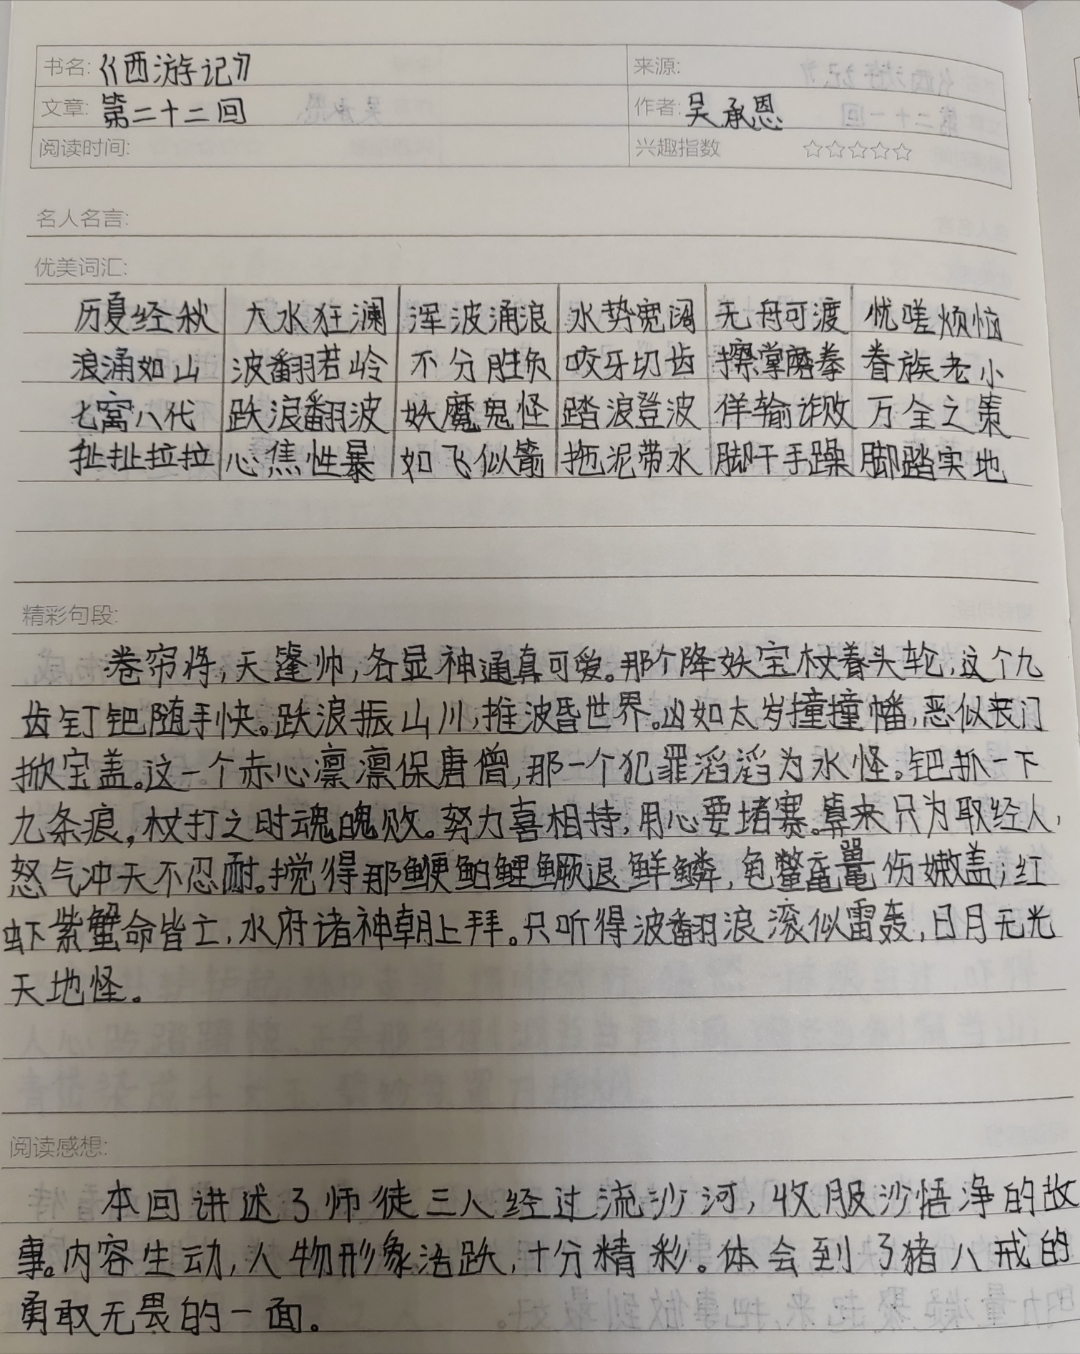 书名:《西游记》 来源:
文章: 第二十二回 作者: 吴承恩
阅读时间: 兴趣指数 ☆☆☆☆☆
名人名言:
优美词汇:
历夏经秋 大水狂澜 浑波涌浪 水势宽阔 无舟可渡 忧嗟烦恼
浪涌如山 波翻若岭 不分胜负 咬牙切齿 擦掌磨拳 眷族老小
七窝八代 跌浪翻波 妖魔鬼怪 踏浪登波 佯输诈败 万全之策
扯扯拉拉 心焦性暴 如飞似箭 拖泥带水 脚干手躁 脚踏实地
精彩句段:
卷帘将,天蓬帅,各显神通真可爱。那个降妖宝杖着头轮,这个九
齿钉钯随手快。跃浪振山川,推波昏世界。凶如太岁撞撞幡,恶似丧门
掀宝盖。这一个赤心凛凛保唐僧,那一个犯罪滔滔为水怪。钯抓一下
九条痕,杖打之时魂魄败。努力喜相持,用心要堵赛。算来只为取经人,
怒气冲天不忍耐。搅得那鲠鲌鲤鳜退鲜鳞,龟鳖鼋鼍伤嫩盖;红
虾紫蟹命皆亡,水府诸神朝上拜。只听得波翻浪滚似雷轰,日月无光
天地怪。
阅读感想:
本回讲述了师徒三人经过流沙河,收服沙悟净的故
事。内容生动,人物形象活跃,十分精彩。体会到了猪八戒的
勇敢无畏的一面。